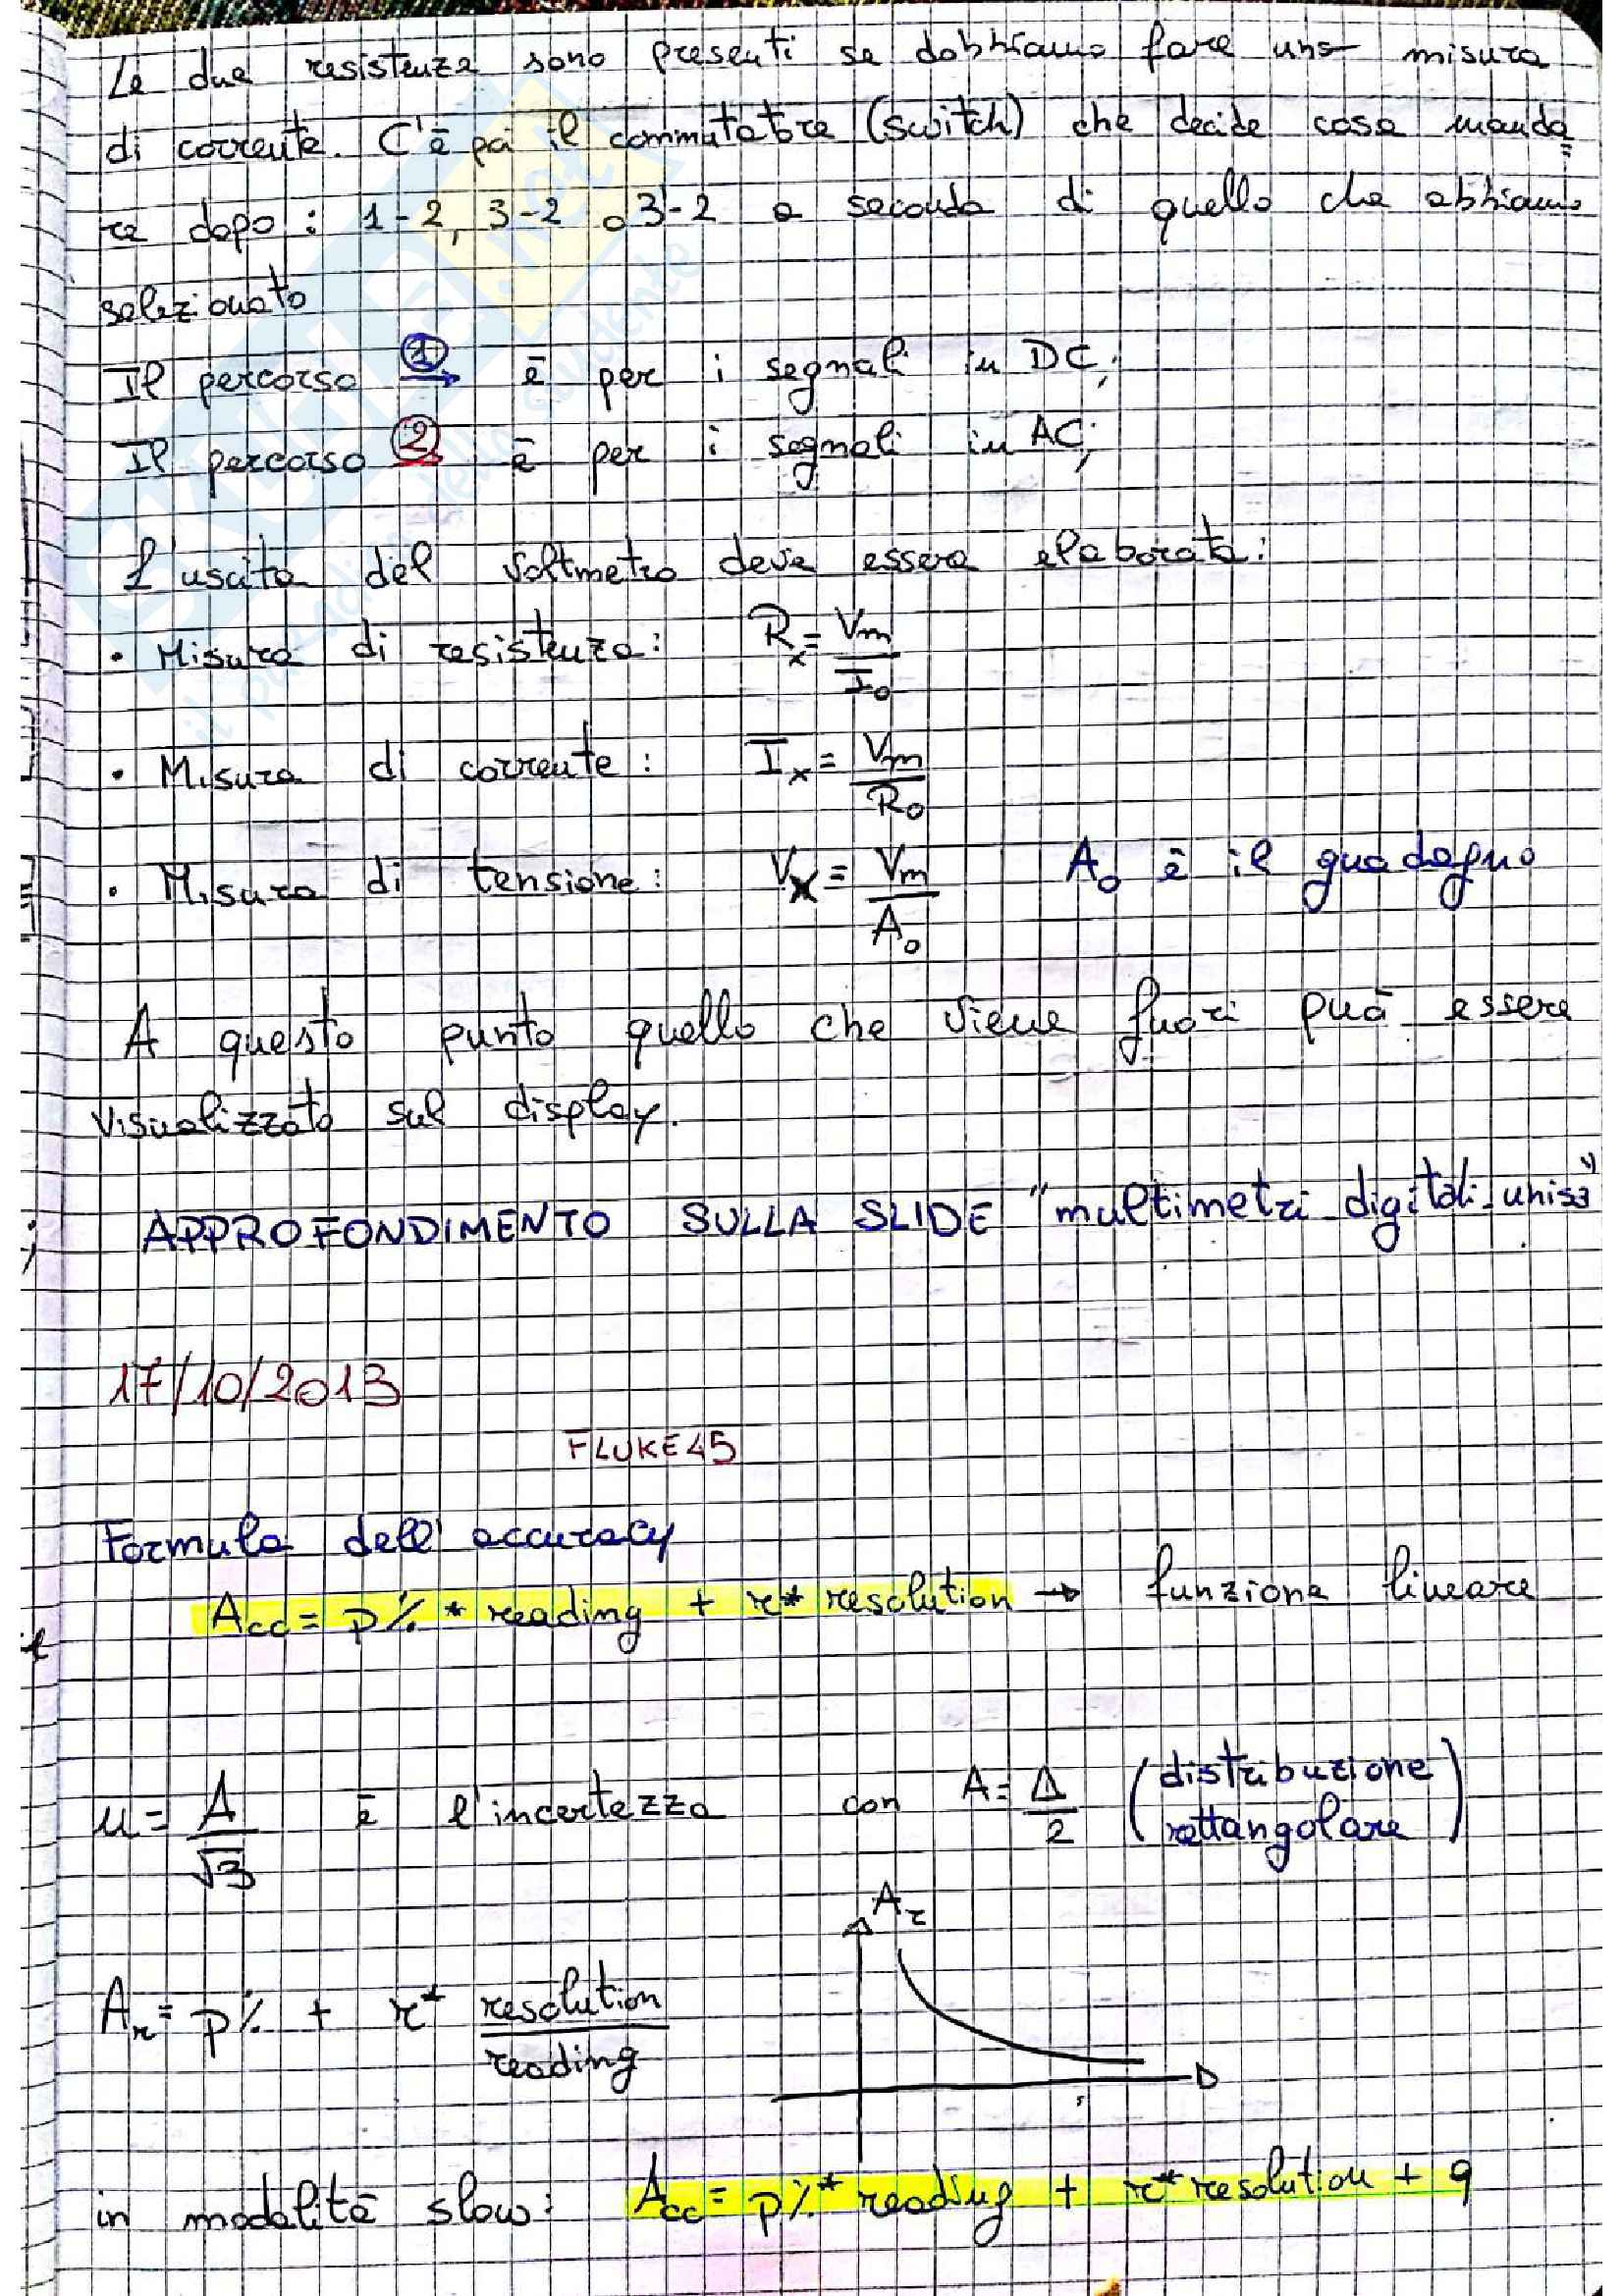 Le due resistenze sono presenti se dobbiamo fare una misura
di corrente. C'è poi il commutatore (switch) che decide cosa manda=
re dopo: 1-2, 3-2 o 3-2 a seconda di quello che abbiamo
selezionato
Il percorso ① è per i segnali in DC;
Il percorso ② è per i segnali in AC;
L'uscita del voltmetro deve essere elaborata:
• Misura di resistenza: Rx = Vm / I0
• Misura di corrente: Ix = Vm / R0
• Misura di tensione: Vx = Vm / A0 A0 è il guadagno
A questo punto quello che viene fuori può essere
visualizzato sul display.
APPROFONDIMENTO SULLA SLIDE "multimetri_digitali_unisa"
17/10/2013
FLUKE45
Formula dell'accuracy
Acc = p% * reading + r* resolution → funzione lineare
u = A / √3 è l'incertezza con A = Δ / 2 (distribuzione rettangolare)
Ar
Ar = p% + r* resolution / reading
in modalità slow: Acc = p%* reading + r* resolution + q
SKUOLA.net
il paradiso dello studente